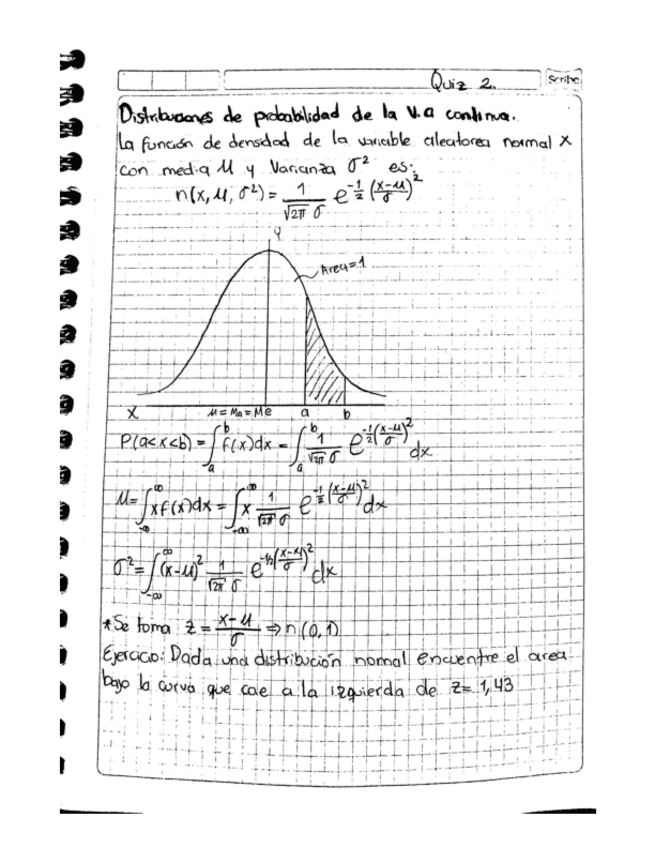 Quiz 2.
Scribe
Distribuciones de probabilidad de la V.a continua.
La función de densidad de la variable aleatorea normal X
con media μ y Varianza σ² es:
n(x, μ, σ²) = 1/(√2π σ) e^(-1/2 ((x-μ)/σ)²)
Y
Area=1
X μ = Mo = Me a b
P(a<x<b) = ∫_a^b f(x)dx = ∫_a^b 1/(√2π σ) e^(-1/2 ((x-μ)/σ)²) dx
μ = ∫_-∞^∞ x f(x)dx = ∫_-∞^∞ x 1/(√2π σ) e^(-1/2 ((x-μ)/σ)²) dx
σ² = ∫_-∞^∞ (x-μ)² 1/(√2π σ) e^(-1/2 ((x-μ)/σ)²) dx
*Se toma z = (x-μ)/σ ⇒ n(0,1)
Ejercicio: Dada una distribución normal encuentre el area
bajo la curva que cae a la izquierda de z= 1,43